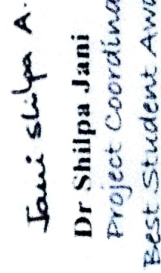 Jani Shilpa A.
Dr Shilpa Jani
Project Coordina
Best Student Awa